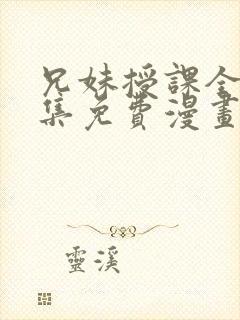 兄妹授課全
集免費漫畫
靈溪